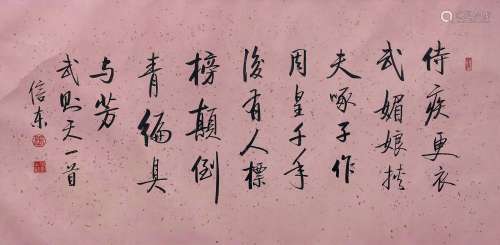 侍疾更衣
武媚娘挟
夫啄子作
周皇千年
後有人標
榜顛倒
青編臭
与芳
武则天一首
信东